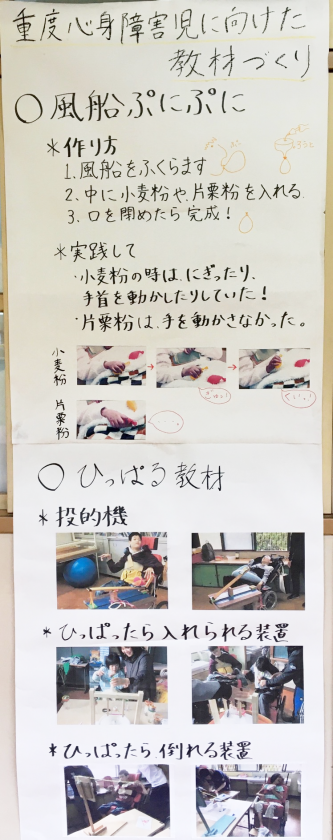 重度心身障害児に向けた
教材づくり
○ 風船ぷにぷに
*作り方
1. 風船をふくらます
2. 中に小麦粉や、片栗粉を入れる
3. 口を閉めたら完成！
*実践して
・小麦粉の時は、にぎったり、
手首を動かしたりしていた！
・片栗粉は、手を動かさなかった。
小麦粉
片栗粉
○ ひっぱる教材
*投的機
*ひっぱったら入れられる装置
*ひっぱったら倒れる装置